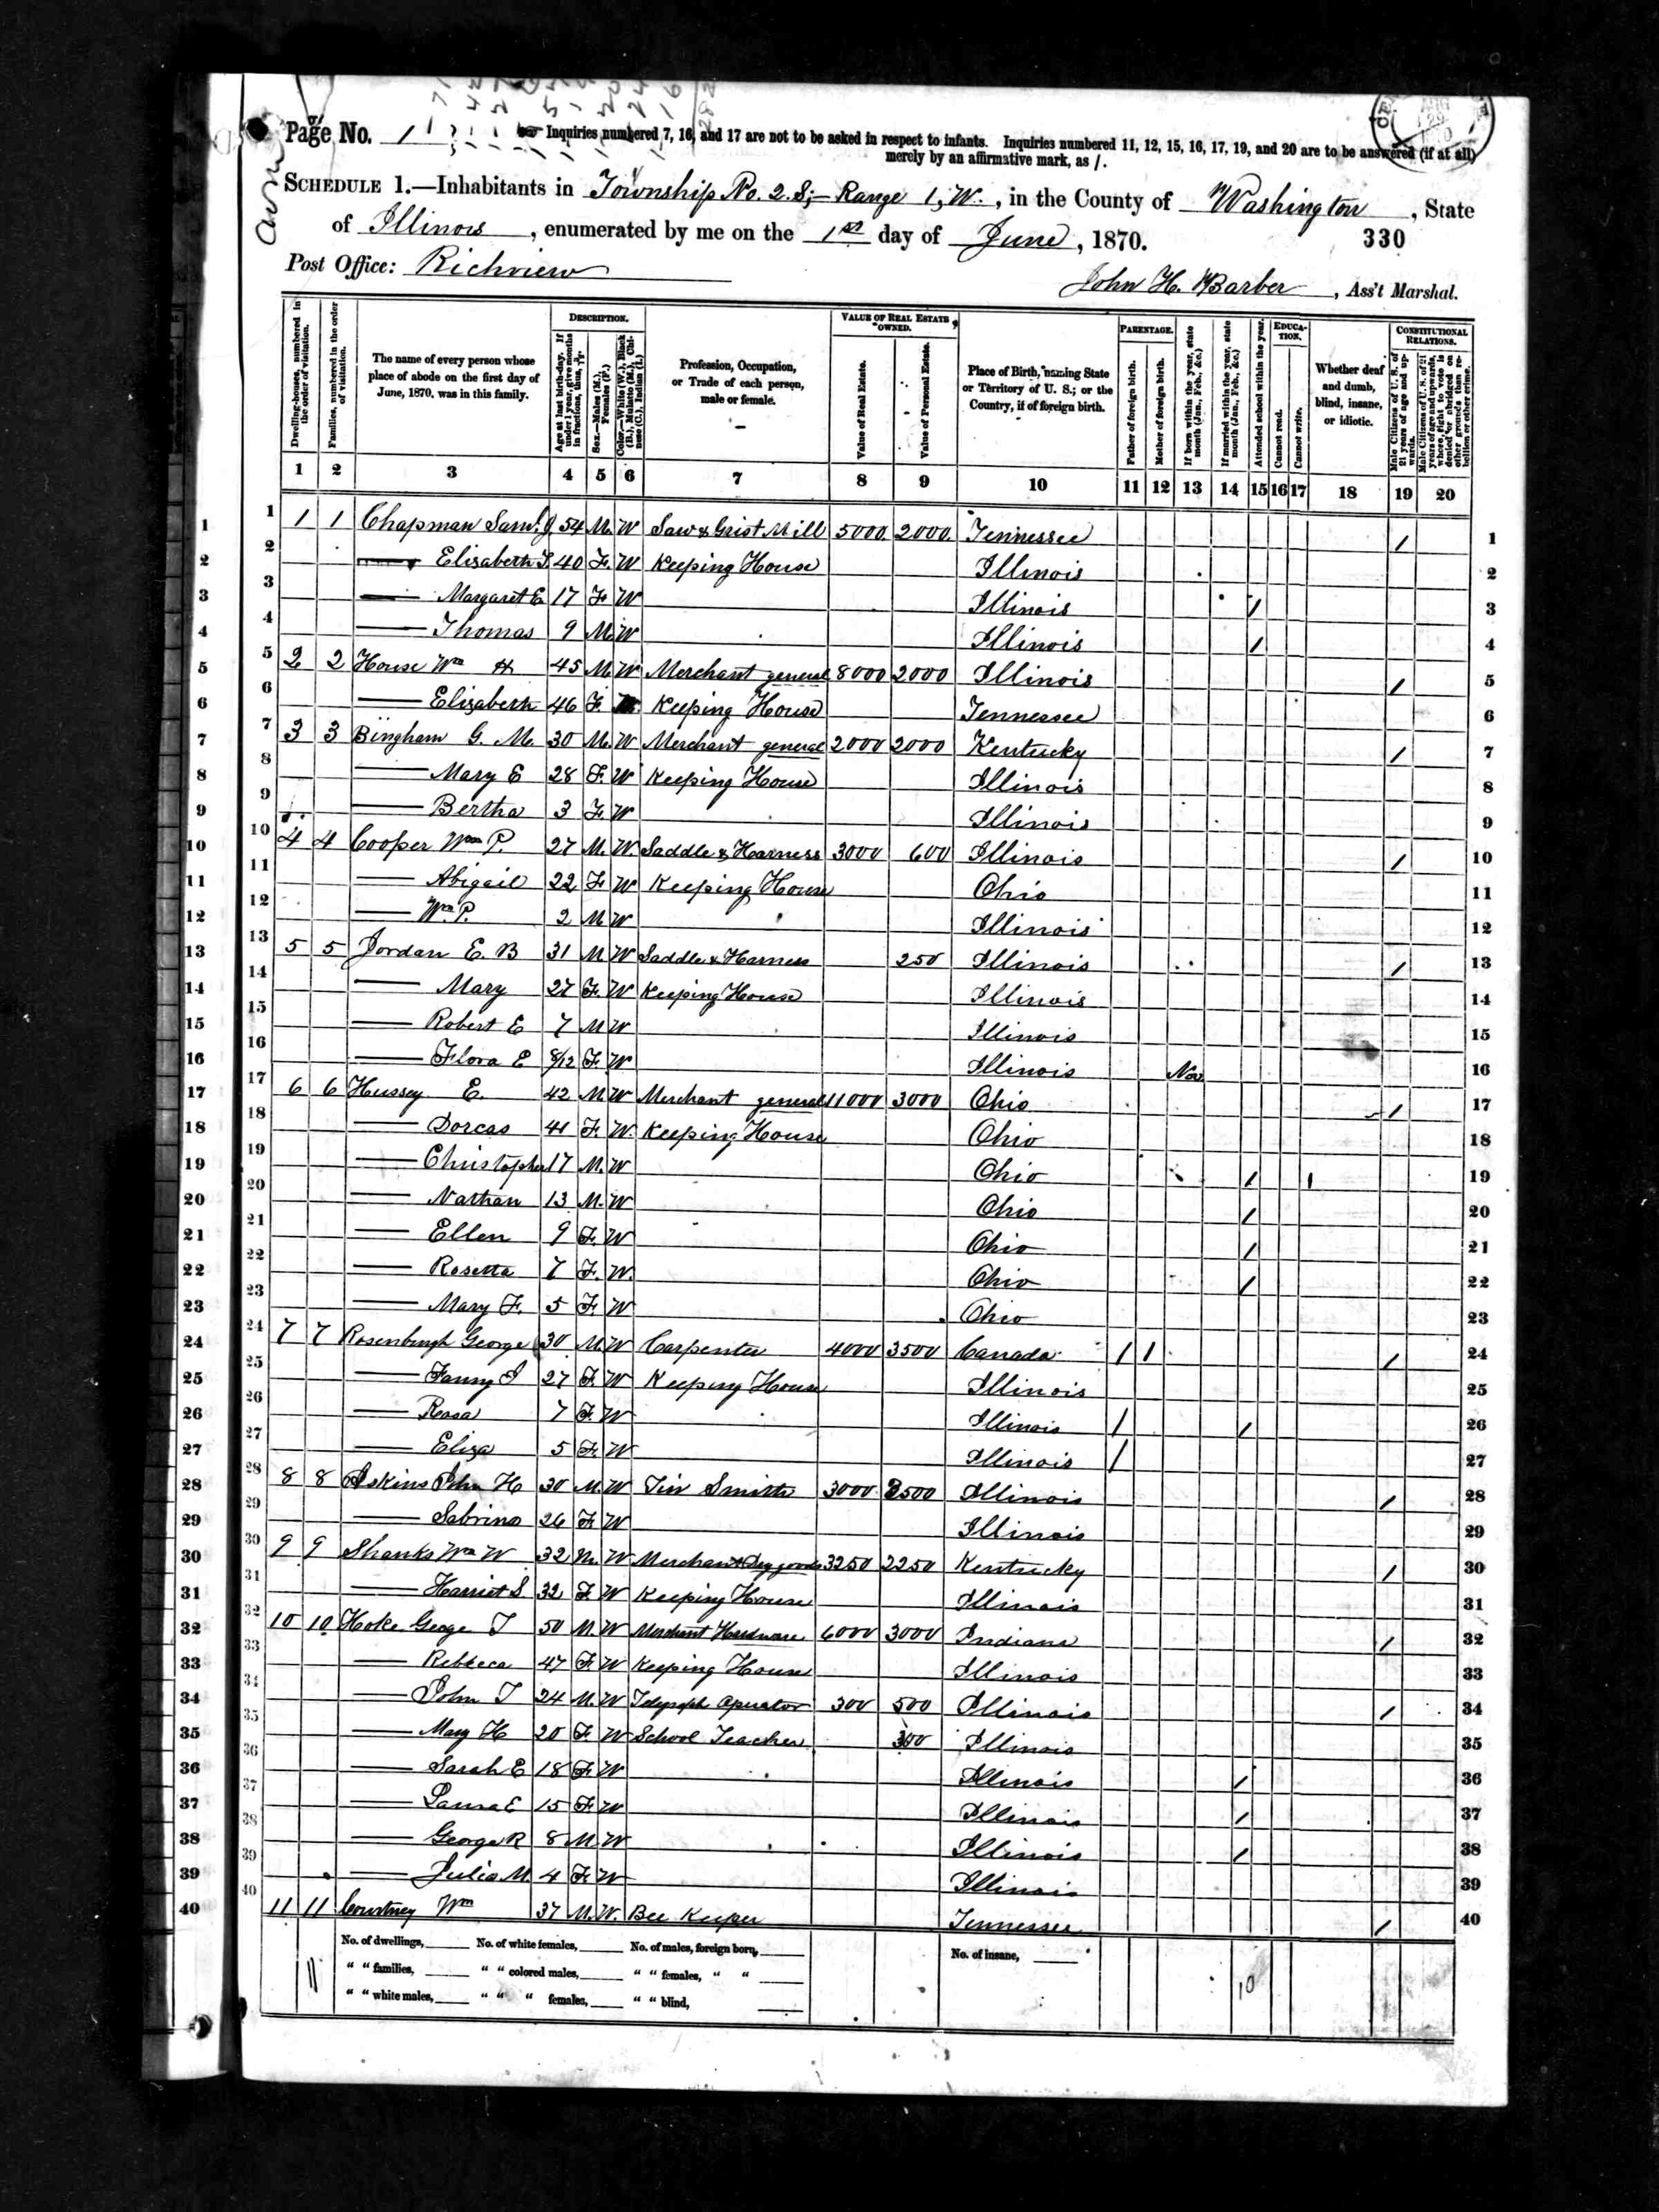 Page No. 1
Inquiries numbered 7, 16, and 17 are not to be asked in respect to infants. Inquiries numbered 11, 12, 15, 16, 17, 19, and 20 are to be answered (if at all)
merely by an affirmative mark, as /.
SCHEDULE 1.—Inhabitants in Township No. 2. S;— Range 1, W. , in the County of Washington , State
of Illinois , enumerated by me on the 1st day of June , 1870.
330
Post Office: Richview
John H. Barber , Ass't Marshal.
Dwelling-houses, numbered in the order of visitation.
Families, numbered in the order of visitation.
The name of every person whose place of abode on the first day of June, 1870, was in this family.
DESCRIPTION.
Age at last birth-day. If under 1 year, give months in fractions, thus, 3/12.
Sex.—Males (M.), Females (F.)
Color.—White (W.), Black (B.), Mulatto (M.), Chinese (C.), Indian (I.)
Profession, Occupation, or Trade of each person, male or female.
VALUE OF REAL ESTATE OWNED.
Value of Real Estate.
Value of Personal Estate.
Place of Birth, naming State or Territory of U. S.; or the Country, if of foreign birth.
PARENTAGE.
Father of foreign birth.
Mother of foreign birth.
If born within the year, state month (Jan., Feb., &c.)
If married within the year, state month (Jan., Feb., &c.)
Attended school within the year.
EDUCATION.
Cannot read.
Cannot write.
Whether deaf and dumb, blind, insane, or idiotic.
CONSTITUTIONAL RELATIONS.
Male Citizens of U. S. of 21 years of age and upwards.
Male Citizens of U. S. of 21 years of age and upwards, where right to vote is denied or abridged on other grounds than rebellion or other crime.
1 2 3 4 5 6 7 8 9 10 11 12 13 14 15 16 17 18 19 20
1 1 1 1 Chapman Saml. J. 54 M. W Saw & Grist Mill 5000 2000 Tennessee / 1
2 2 —— Elizabeth 40 F. W Keeping House Illinois 2
3 3 —— Margaret E 17 F W Illinois / 3
4 4 —— Thomas 9 M. W Illinois / 4
5 5 2 2 House Wm H 45 M. W Merchant general 8000 2000 Illinois / 5
6 6 —— Elizabeth 46 F. Keeping House Tennessee 6
7 7 3 3 Bingham G. M. 30 M. W Merchant general 2000 2000 Kentucky / 7
8 8 —— Mary E 28 F. W Keeping House Illinois 8
9 9 —— Bertha 3 F. W Illinois 9
10 10 4 4 Cooper Wm P. 27 M. W. Saddle & Harness 3000 600 Illinois / 10
11 11 —— Abigail 22 F. W Keeping House Ohio 11
12 12 —— Wm P. 2 M W Illinois 12
13 13 5 5 Jordan E. B 31 M. W Saddle & Harness 250 Illinois / 13
14 14 —— Mary 27 F. W Keeping House Illinois 14
15 15 —— Robert E 7 M W Illinois 15
16 16 —— Flora E 8/12 F. W Illinois Nov 16
17 17 6 6 Hussey E. 42 M W Merchant general 11000 3000 Ohio / 17
18 18 —— Dorcas 41 F. W. Keeping House Ohio 18
19 19 —— Christopher 17 M. W Ohio / / 19
20 20 —— Nathan 13 M. W Ohio / 20
21 21 —— Ellen 9 F. W Ohio / 21
22 22 —— Rosetta 7 F. W. Ohio / 22
23 23 —— Mary F. 5 F. W Ohio 23
24 24 7 7 Rosenburgh George 30 M. W Carpenter 4000 3500 Canada / / / 24
25 25 —— Fanny J 27 F. W Keeping House Illinois 25
26 26 —— Rosa 7 F. W Illinois / / 26
27 27 —— Eliza 5 F. W Illinois / 27
28 28 8 8 Askins John H 30 M. W Tin Smith 3000 Illinois / 28
29 29 —— Sabrina 26 F. W Illinois 29
30 30 9 9 Shanks Wm W 32 M. W Merchant Dry goods 3250 2250 Kentucky / 30
31 31 —— Harriet S 32 F. W Keeping House Illinois 31
32 32 10 10 Hoke George T 50 M. W Merchant Hardware 6000 3000 Indiana / 32
33 33 —— Rebbeca 47 F. W Keeping House Illinois 33
34 34 —— John T 24 M. W Telegraph Operator 300 500 Illinois / 34
35 35 —— Mary H 20 F. W School Teacher 300 Illinois 35
36 36 —— Sarah E 18 F. W Illinois / 36
37 37 —— Laura E 15 F. W Illinois / 37
38 38 —— George R 8 M. W Illinois / 38
39 39 —— Julia M. 4 F. W Illinois 39
40 40 11 11 Courtney Wm 37 M. W. Bee Keeper Tennessee / 40
No. of dwellings, No. of white females, No. of males, foreign born, No. of insane,
" " families, " " colored males, " " females, " "
" " white males, " " " females, " " blind,
11
10